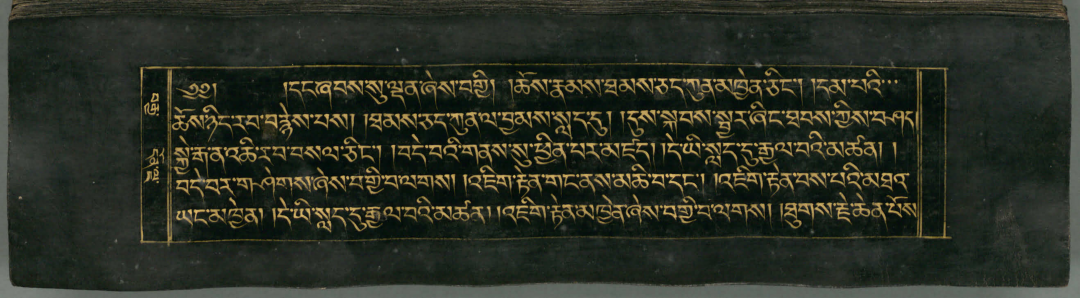 ༄༅། །དང་ཞབས་སུ་ལྡན་ཞེས་བགྱི། །ཆོས་རྣམས་ཐམས་ཅད་ཀུན་མཁྱེན་ཅིང་། །དམ་པའི་
ཆོས་ཉིད་རབ་བརྙེས་པས། །ཐམས་ཅད་ཀུན་ལ་བྱམས་སླད་དུ། །དུས་སྐབས་སྦྱར་ཞིང་ཐབས་ཀྱིས་བཤད།
སྐྱེ་རྒ་ན་འཆི་ར་བ་བསལ་ཅིང་། །བདེ་བའི་གནས་སུ་ཕྱིན་པར་མཛད། །དེ་ཡི་སླད་དུ་རྒྱལ་བའི་མཚན། །
བདེ་བར་གཤེགས་ཞེས་བགྱི་བ་ལགས། །འཇིག་རྟེན་གང་ནས་མཆི་བ་དང་། །འཇིག་རྟེན་བས་པའི་མཐའ་
ཡང་མཁྱེན། །དེ་ཡི་སླད་དུ་རྒྱལ་བའི་མཚན། །འཇིག་རྟེན་མཁྱེན་ཞེས་བགྱི་བ་ལགས། །ཐུགས་རྗེ་ཆེན་པོས